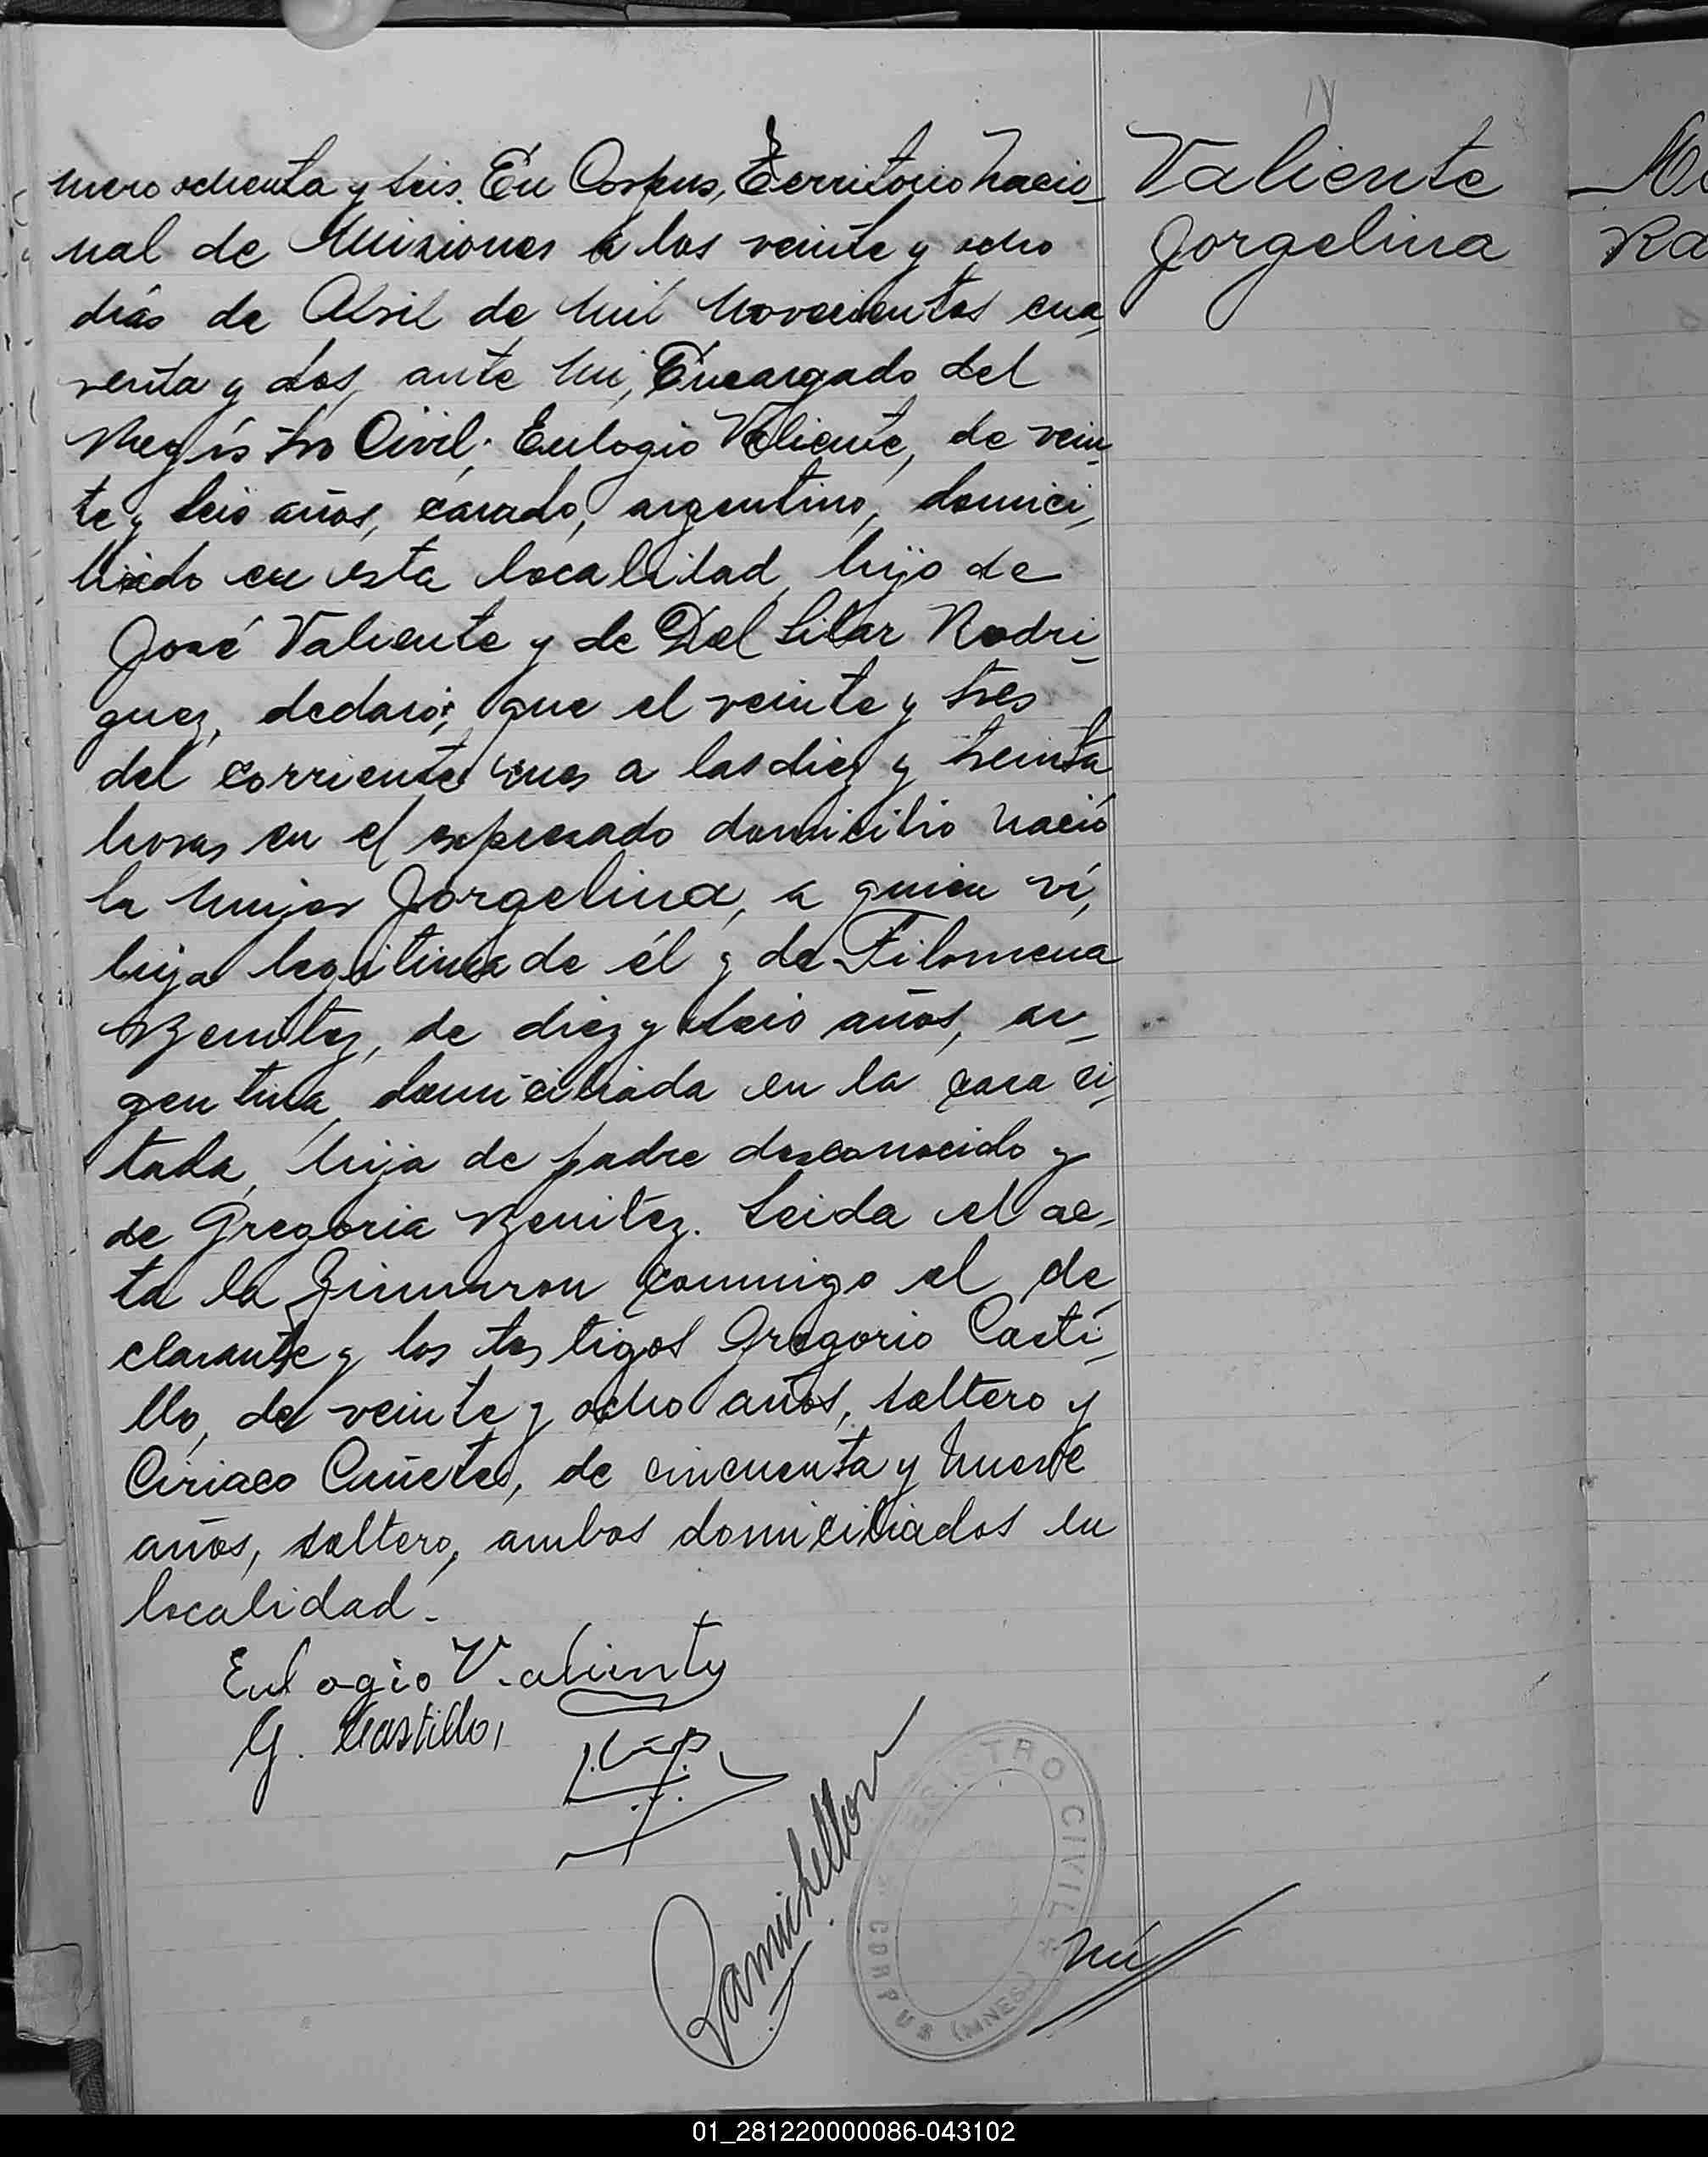 mero ochenta y seis. En Corpus, Territorio Nacio_
nal de Misiones a los veinte y ocho
días de Abril de mil novecientos cua,
renta y dos, ante mi, Encargado del
Registro Civil; Eulogio Valiente, de vein_
te y seis años, casado, argentino, domici,
liado en esta localidad, hijo de
José Valiente y de Del Pilar Rodri_
guez, declaró; que el veinte y tres
del corriente mes a las diez y treinta
horas en el expresado domicilio nació
la mujer Jorgelina, a quien ví,
hija legitima de él y de Filomena
Benitez, de diez y seis años, ar_
gentina, domiciliada en la casa ci,
tada, hija de padre desconocido y
de Gregoria Benitez. Leida el ac,
ta la firmaron conmigo el de,
clarante y los testigos Gregorio Casti,
llo, de veinte y ocho años, soltero y
Ciriaco Cañete, de cincuenta y nueve
años, soltero, ambos domiciliados en
localidad.
Eulogio Valiente
G. Castillo
Valiente
Jorgelina
REGISTRO CIVIL
CORPUS (MNES)
Ra
01_281220000086-043102